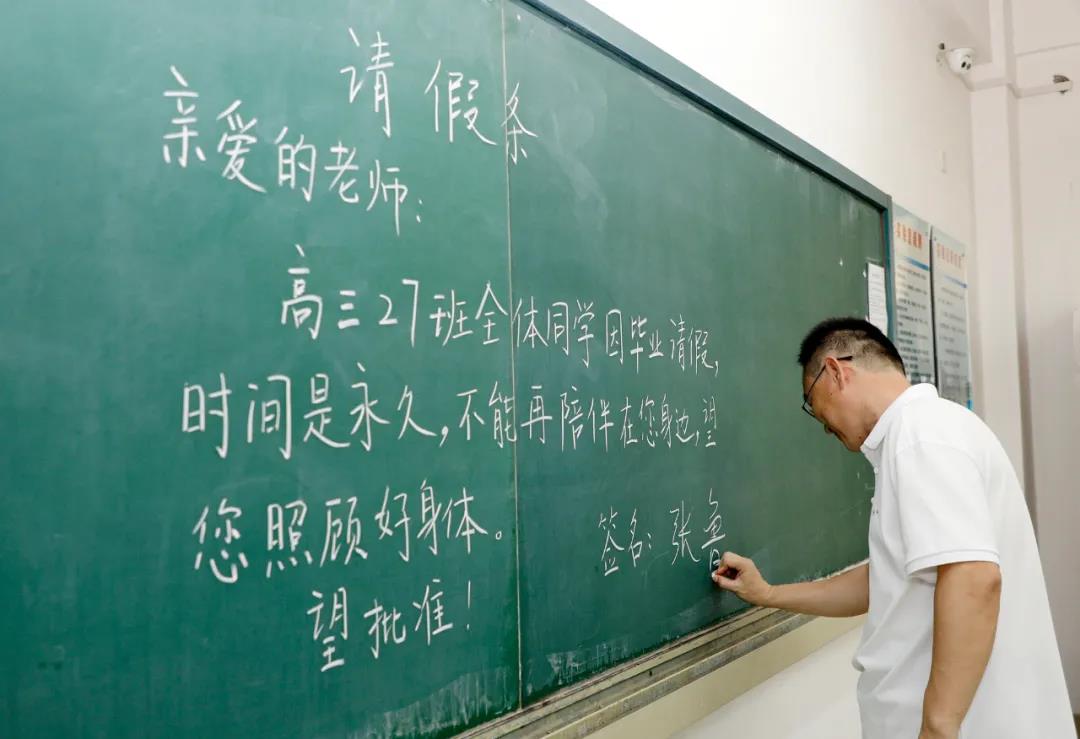 请假条
亲爱的老师:
高三27班全体同学因毕业请假,
时间是永久,不能再陪伴在您身边,望
您照顾好身体。
望批准!
签名:张鲁